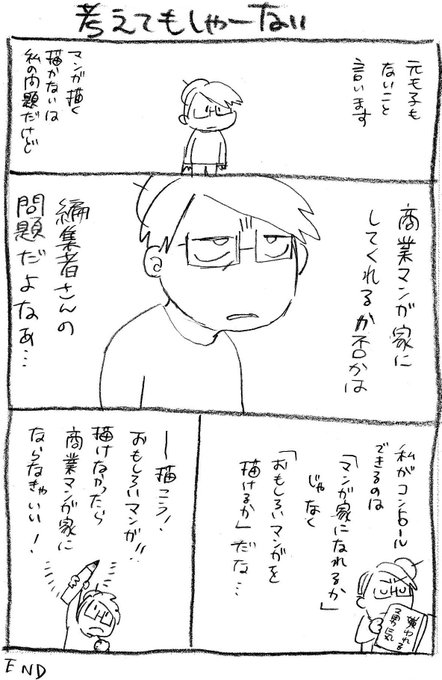 考えてもしゃーない
元も子も
ないこと
言います
マンガ描く
描かないは
私の問題だけど
商業マンガ家に
してくれるか否かは
編集者さんの
問題だよなぁ…
私がコントロール
できるのは
「マンガ家になれるか」
じゃなく
「おもしろいマンガを
描けるか」だな…
嫌われる
勇気
──描こう!
おもしろいマンガ!!
描けなかったら
商業マンガ家に
ならなきゃいい!
END